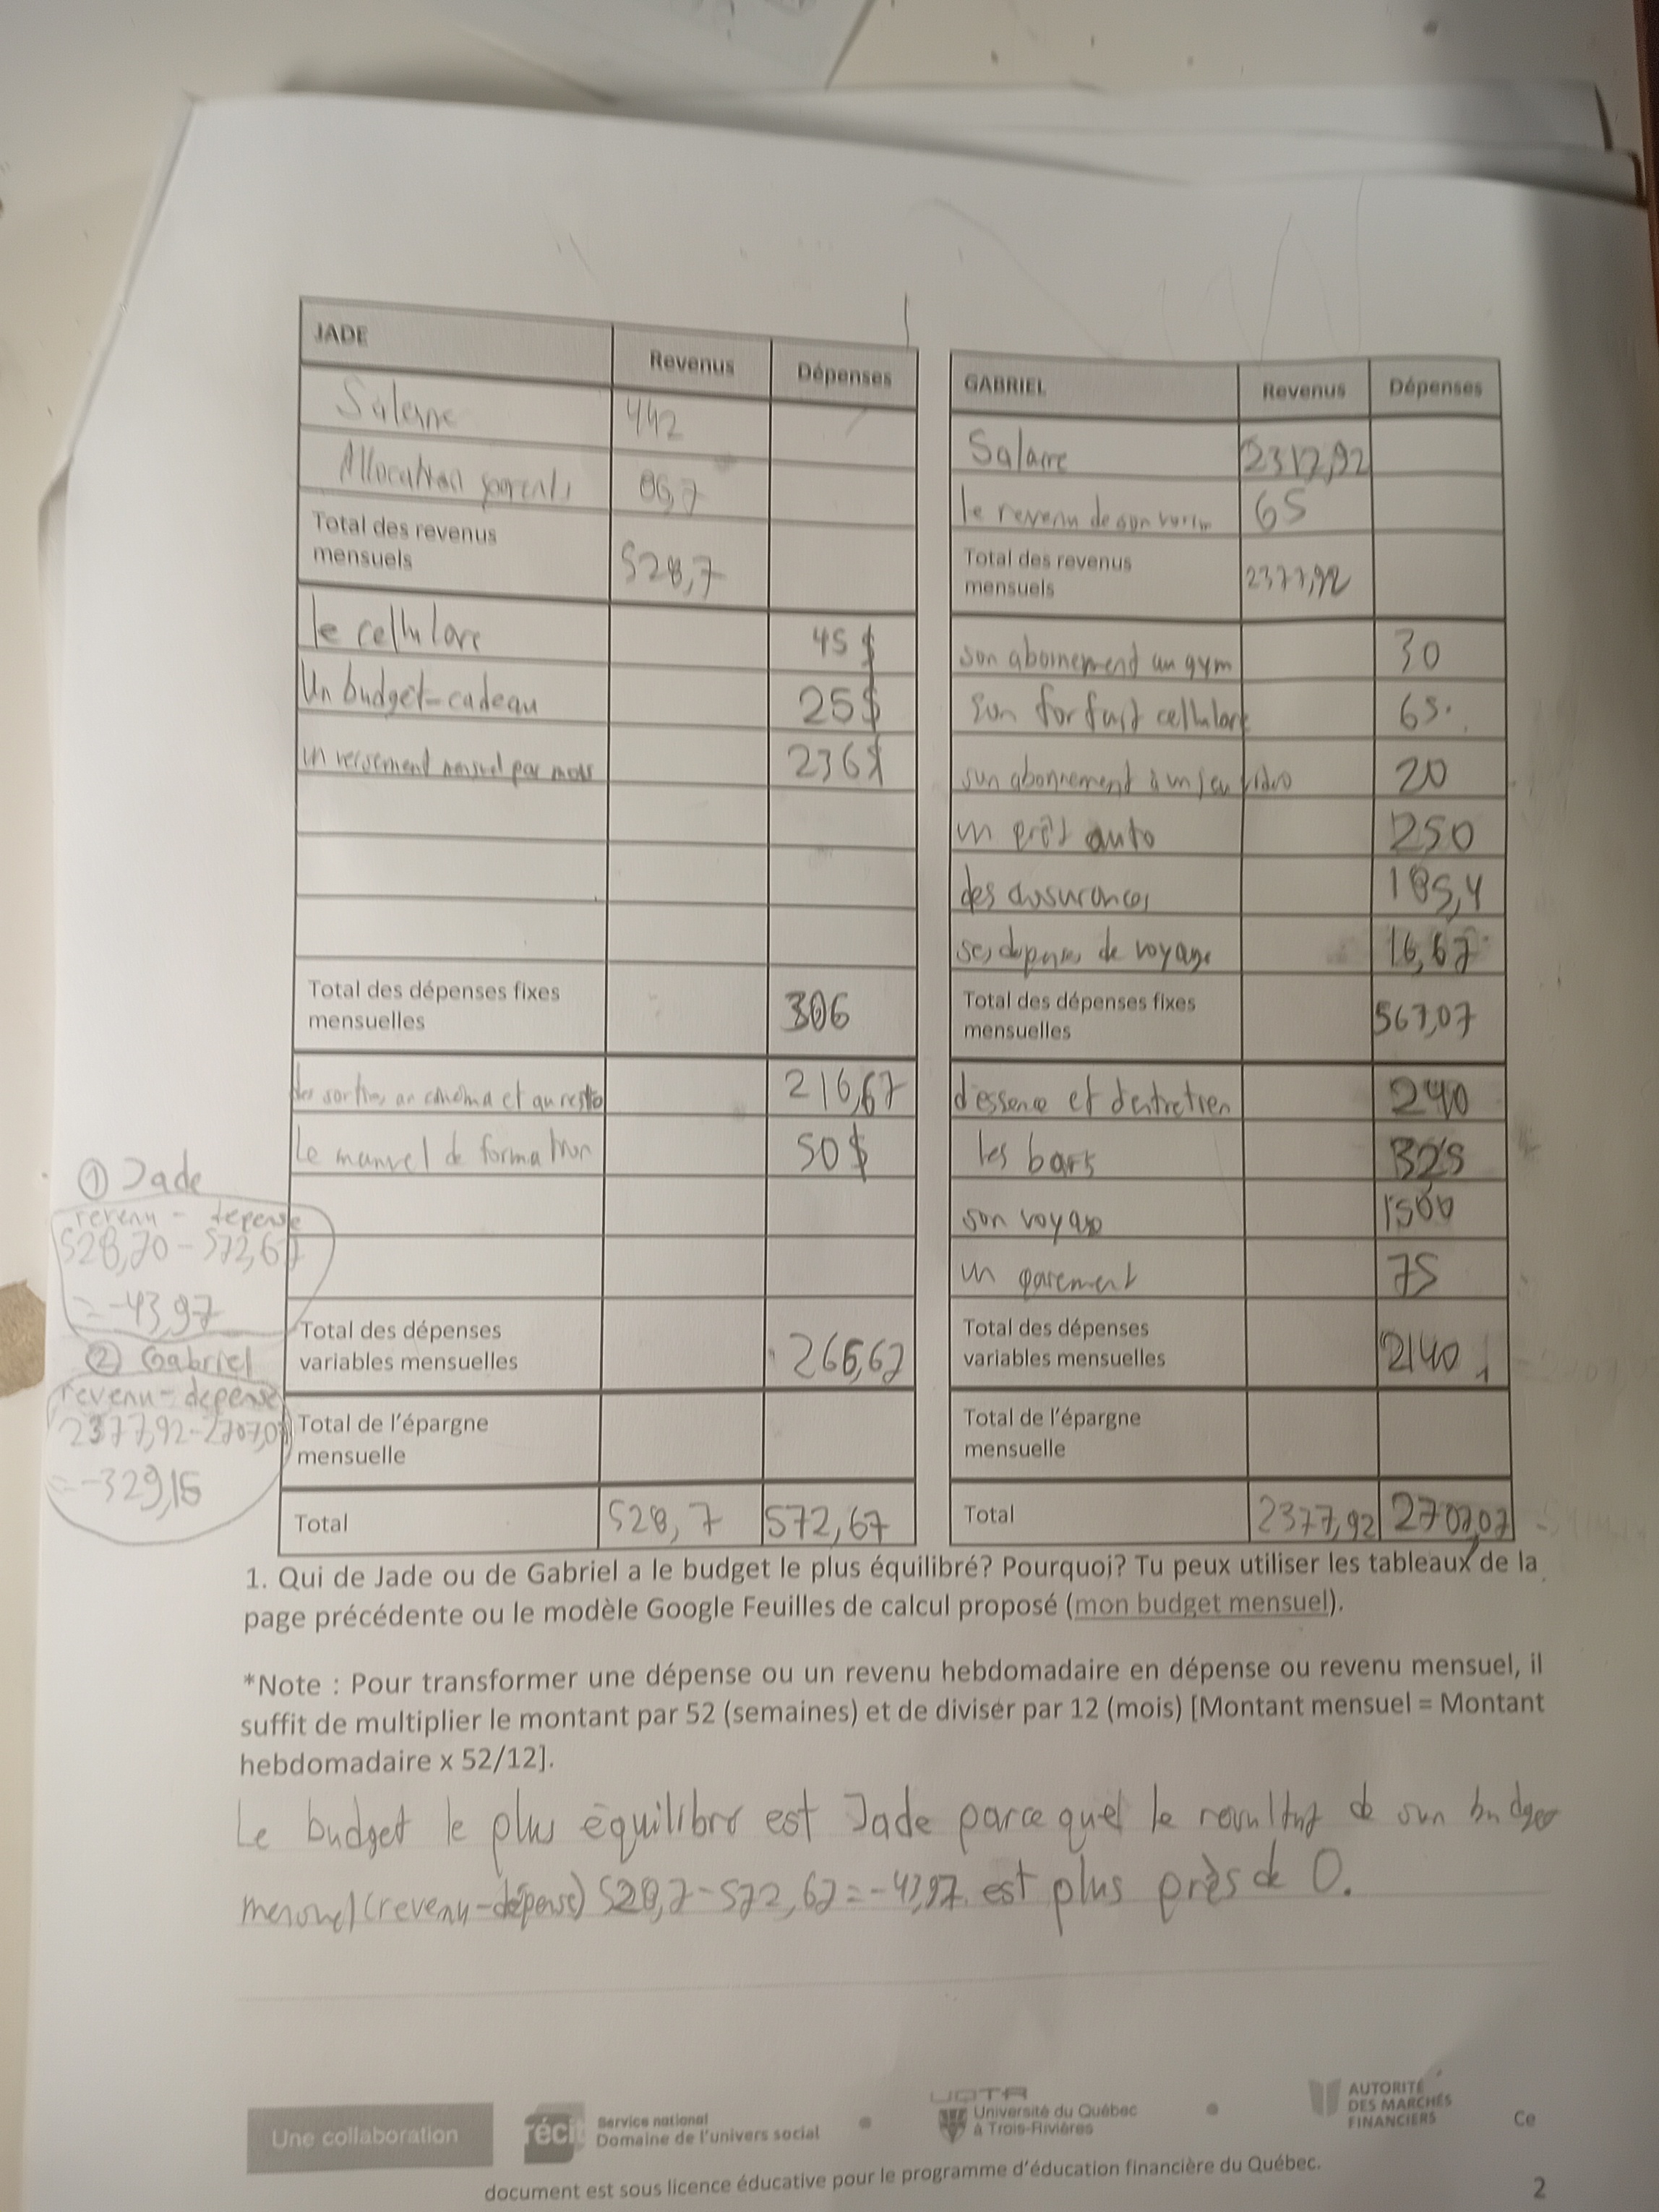 JADE Revenus Dépenses
Salaire 442
Allocation parents 86,7
Total des revenus mensuels 528,7
le cellulare 45 $
Un budget-cadeau 25$
un versement mensuel par mois 236$
Total des dépenses fixes mensuelles 306
des sorties au cinéma et au resto 216,67
Le manuel de formation 50$
Total des dépenses variables mensuelles 266,67
Total de l'épargne mensuelle
Total 528,7 572,67
GABRIEL Revenus Dépenses
Salaire 2312,92
le revenu de son 65
Total des revenus mensuels 2377,92
son abonnement au gym 30
son forfait cellulare 65
son abonnement à un jeu vidéo 20
un prêt auto 250
des assurances 185,4
ses dépenses de voyage 16,67
Total des dépenses fixes mensuelles 567,07
d'essence et d'entretien 240
les bars 325
son voyage 1500
un paiement 75
Total des dépenses variables mensuelles 2140
Total de l'épargne mensuelle
Total 2377,92 2707,07
① Jade
revenu - depense
528,70 - 572,67
= -43,97
② Gabriel
revenu - depense
2377,92-2707,07
= -329,15
1. Qui de Jade ou de Gabriel a le budget le plus équilibré? Pourquoi? Tu peux utiliser les tableaux de la
page précédente ou le modèle Google Feuilles de calcul proposé (mon budget mensuel).
*Note : Pour transformer une dépense ou un revenu hebdomadaire en dépense ou revenu mensuel, il
suffit de multiplier le montant par 52 (semaines) et de diviser par 12 (mois) [Montant mensuel = Montant
hebdomadaire x 52/12].
Le budget le plus équilibré est Jade parce quel le resultat de son budget
mensuel (revenu-dépense) 528,7-572,67=-43,97. est plus près de 0.
Une collaboration
récit
Service national
Domaine de l'univers social
UQTR
Université du Québec
à Trois-Rivières
AUTORITÉ
DES MARCHÉS
FINANCIERS
Ce
document est sous licence éducative pour le programme d'éducation financière du Québec.
2